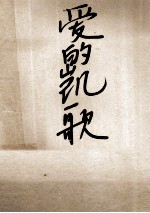 爱的凯歌